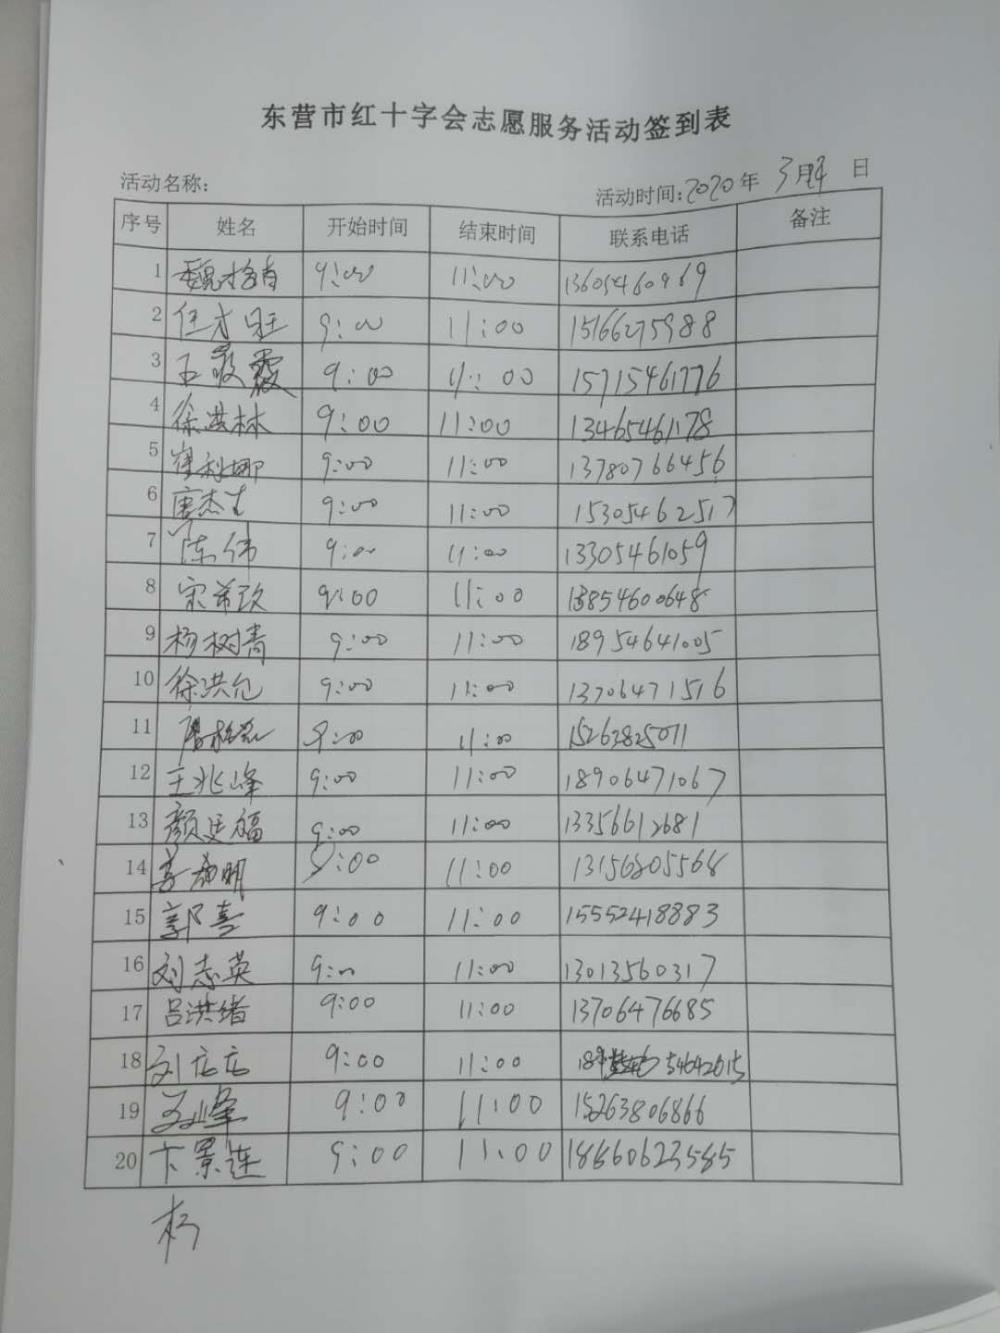 东营市红十字会志愿服务活动签到表
活动名称: 活动时间:2020年 3月4日
序号 姓名 开始时间 结束时间 联系电话 备注
1 9:00 11:00 13605460969
2 任才旺 9:00 11:00 15166275988
3 王敬霞 9:00 11:00 15715461776
4 徐洪林 9:00 11:00 13465461178
5 崔利娜 9:00 11:00 13780766456
6 唐杰 9:00 11:00 15305462517
7 陈伟 9:00 11:00 13305461059
8 宋希玫 9:00 11:00 13854600648
9 杨树青 9:00 11:00 18954641005
10 徐洪 9:00 11:00 13706471516
11 9:00 11:00 15263825011
12 王兆峰 9:00 11:00 18906471067
13 颜廷福 9:00 11:00 13356612681
14 明 9:00 11:00 13156805568
15 郭喜 9:00 11:00 15552418883
16 刘志英 9:00 11:00 13013560317
17 吕洪绪 9:00 11:00 13706476685
18 刘 9:00 11:00 189 54642615
19 峰 9:00 11:00 15263806866
20 卞景连 9:00 11:00 18660623585